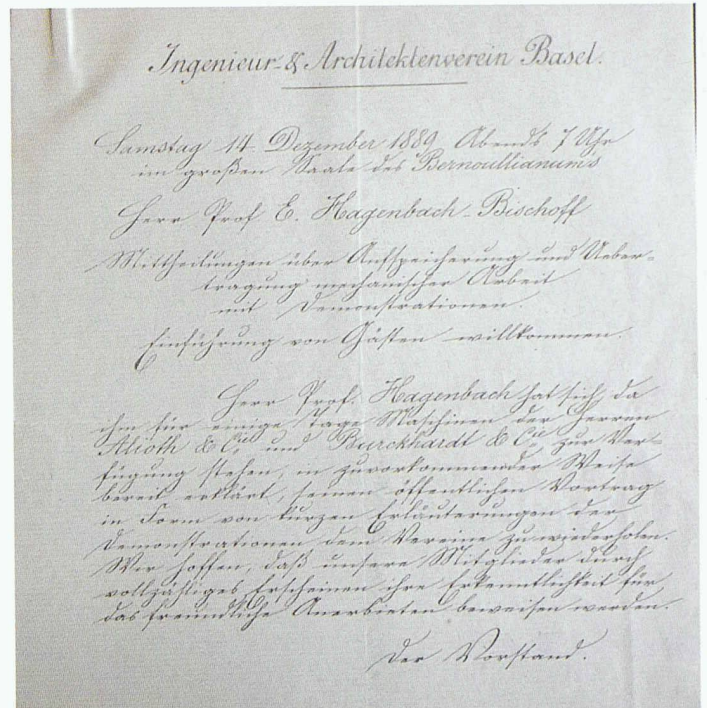 Ingenieur- & Architektenverein Basel.
Samstag 14. Dezember 1889 Abends 7 Uhr
im großen Saale des Bernoullianums
Herr Prof E. Hagenbach-Bischoff
Mittheilungen über Aufspeicherung und Ueber-
tragung mechanischer Arbeit
mit Demonstrationen.
Einführung von Gästen willkommen.
Herr Prof. Hagenbach hat sich, da
ihm für einige Tage Maschinen der Herren
Alioth & Cie. und Burckhardt & Cie. zur Ver-
fügung stehen, in zuvorkommender Weise
bereit erklärt, seinen öffentlichen Vortrag
in Form von kurzen Erläuterungen der
Demonstrationen dem Vereine zu wiederholen.
Wir hoffen, daß unsere Mitglieder durch
vollzähliges Erscheinen ihre Erkenntlichkeit für
das freundliche Anerbieten beweisen werden.
Der Vorstand.